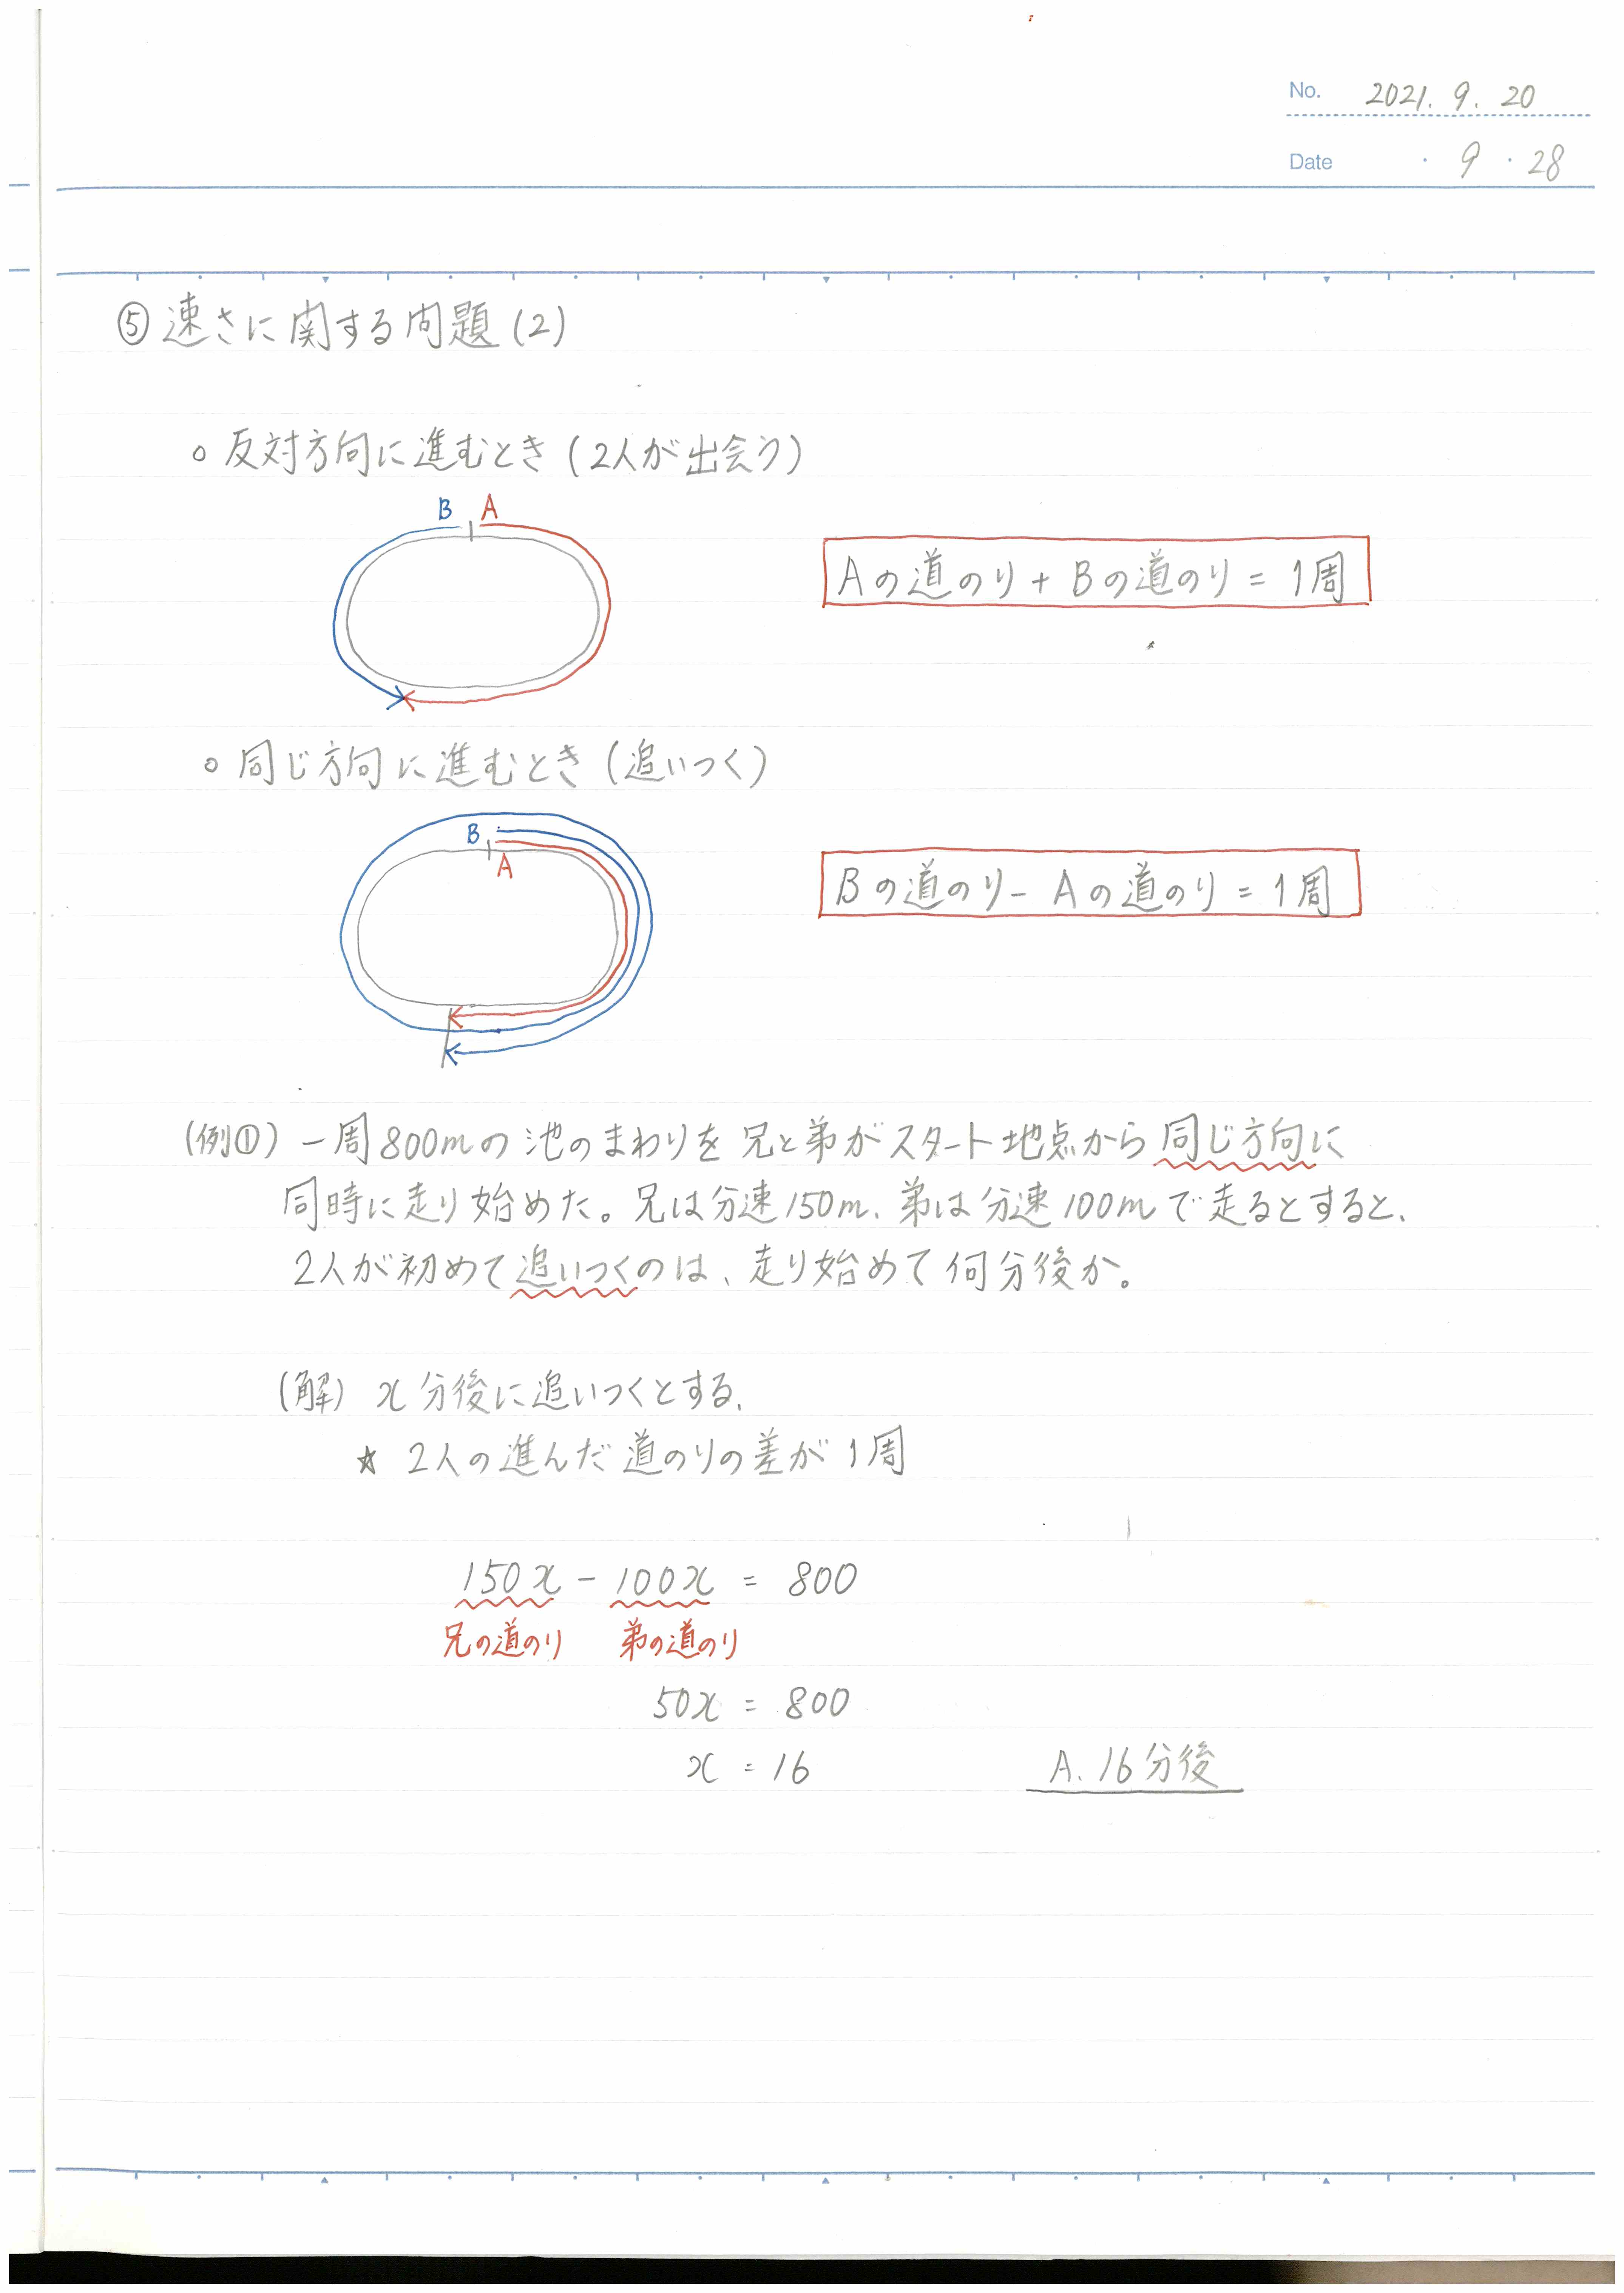 No. 2021. 9. 20
Date ・ 9 ・ 28
⑤ 速さに関する問題 (2)
○ 反対方向に進むとき (2人が出会う)
B A
Aの道のり + Bの道のり = 1周
○ 同じ方向に進むとき (追いつく)
B
A
Bの道のり - Aの道のり = 1周
(例①) 一周800mの池のまわりを兄と弟がスタート地点から同じ方向に
同時に走り始めた。兄は分速150m、弟は分速100mで走るとすると、
2人が初めて追いつくのは、走り始めて何分後か。
(解) x分後に追いつくとする、
☆ 2人の進んだ道のりの差が1周
150x - 100x = 800
兄の道のり 弟の道のり
50x = 800
x = 16 A. 16分後